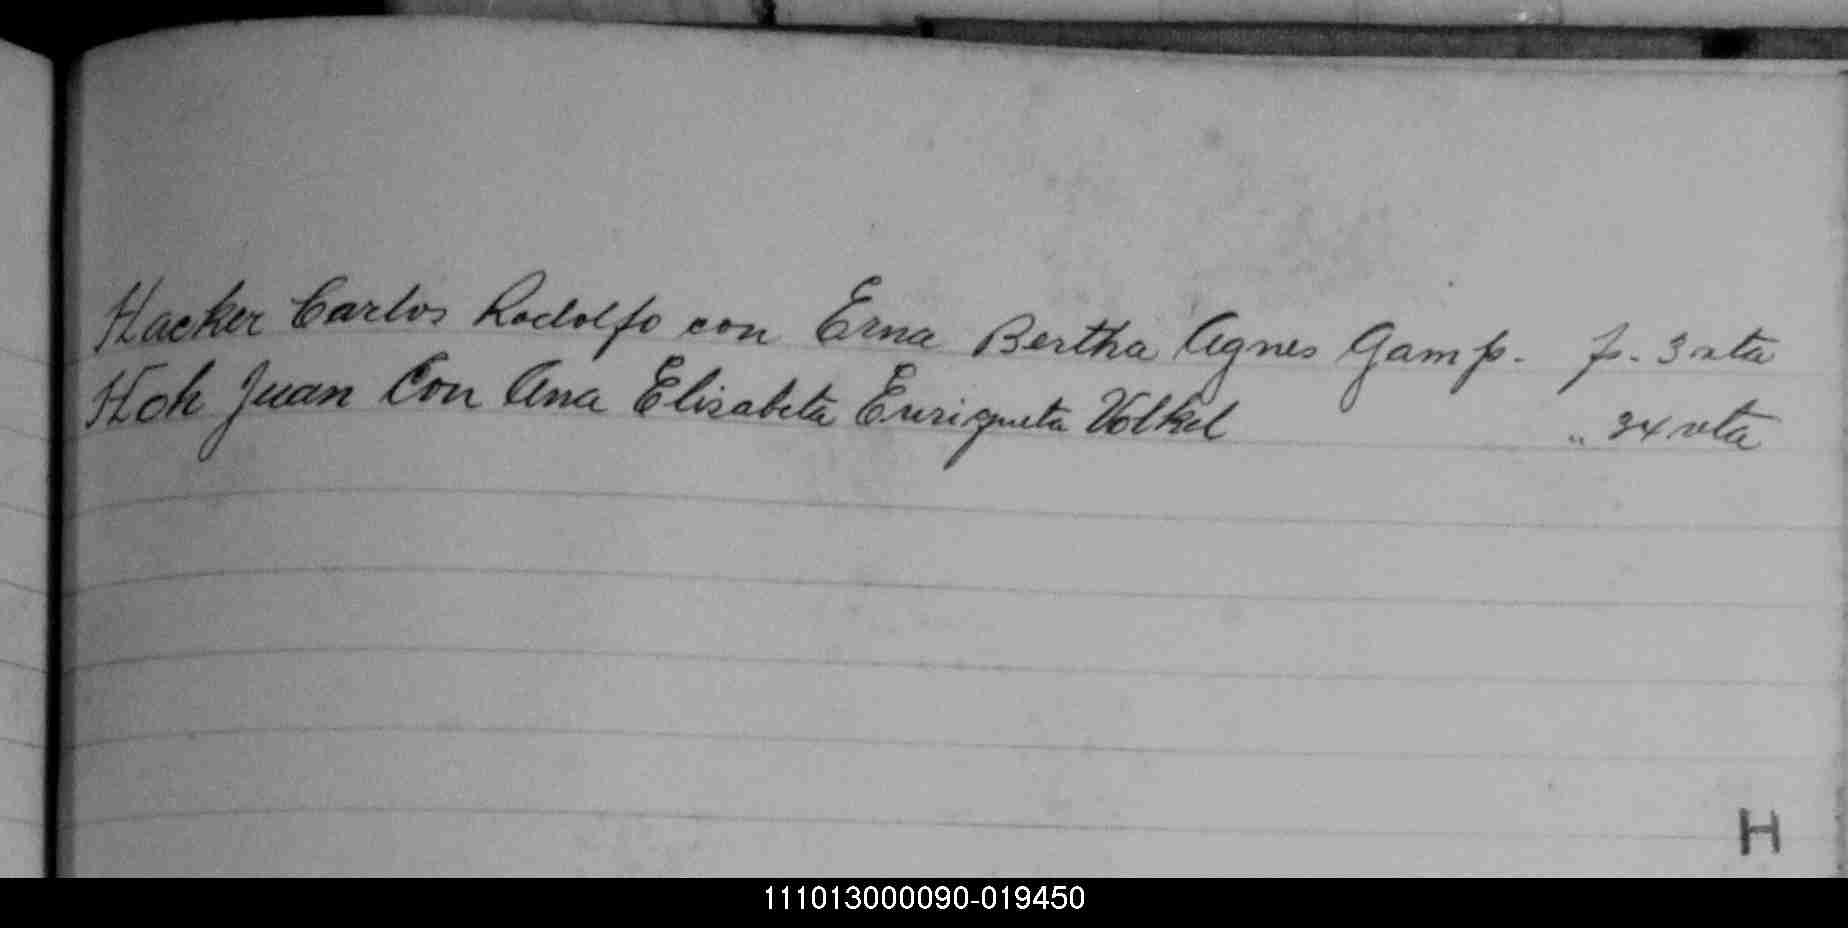 Hacker Carlos Rodolfo con Erna Bertha Agnes Gamp. f. 3 vta
Hoh Juan Con Ana Elisabeta Enriqueta Volkel " 34 vta
H
111013000090-019450